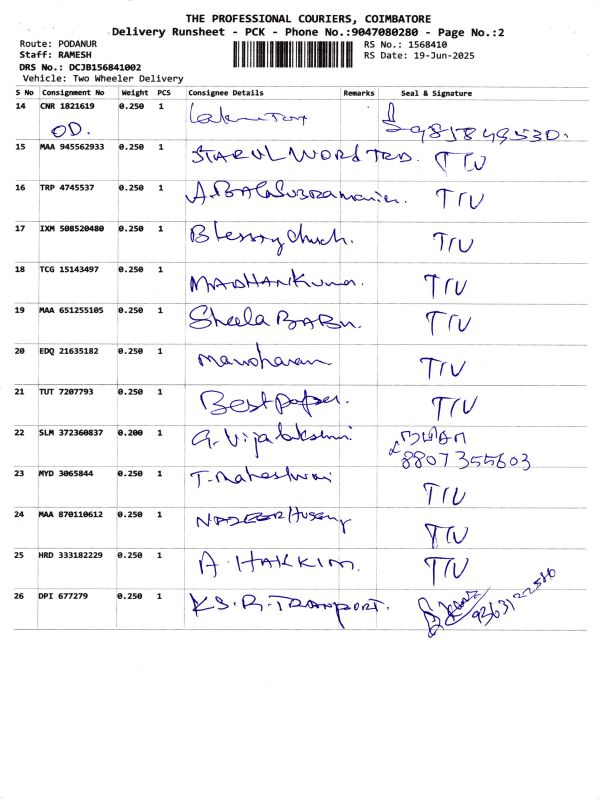 THE PROFESSIONAL COURIERS, COIMBATORE
Delivery Runsheet - PCK - Phone No.:9047080280 - Page No.:2
Route: PODANUR RS No.: 1568410
Staff: RAMESH RS Date: 19-Jun-2025
DRS No.: DCJB156841002
Vehicle: Two Wheeler Delivery
S No Consignment No Weight PCS Consignee Details Remarks Seal & Signature
14 CNR 1821619 0.250 1
OD.
15 MAA 945562933 0.250 1 TRD. T I U
16 TRP 4745537 0.250 1 A. BALASUBRAmanian. T I U
17 IXM 508520480 0.250 1 Blessing church. T I U
18 TCG 15143497 0.250 1 MADHANKumar. T I U
19 MAA 651255105 0.250 1 Sheela BABU. T I U
20 EDQ 21635182 0.250 1 manoharan T I U
21 TUT 7207793 0.250 1 Best paper. T I U
22 SLM 372360837 0.200 1 G. Vijalakshmi
8807355603
23 MYD 3065844 0.250 1 T. maheshwari T I U
24 MAA 870110612 0.250 1 NAZEER T I U
25 HRD 333182229 0.250 1 A. HAKKIM. T I U
26 DPI 677279 0.250 1 K.S.R. TRANSPORT.